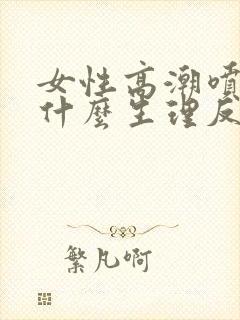 女性高潮噴
什麼生理反
繁凡啊